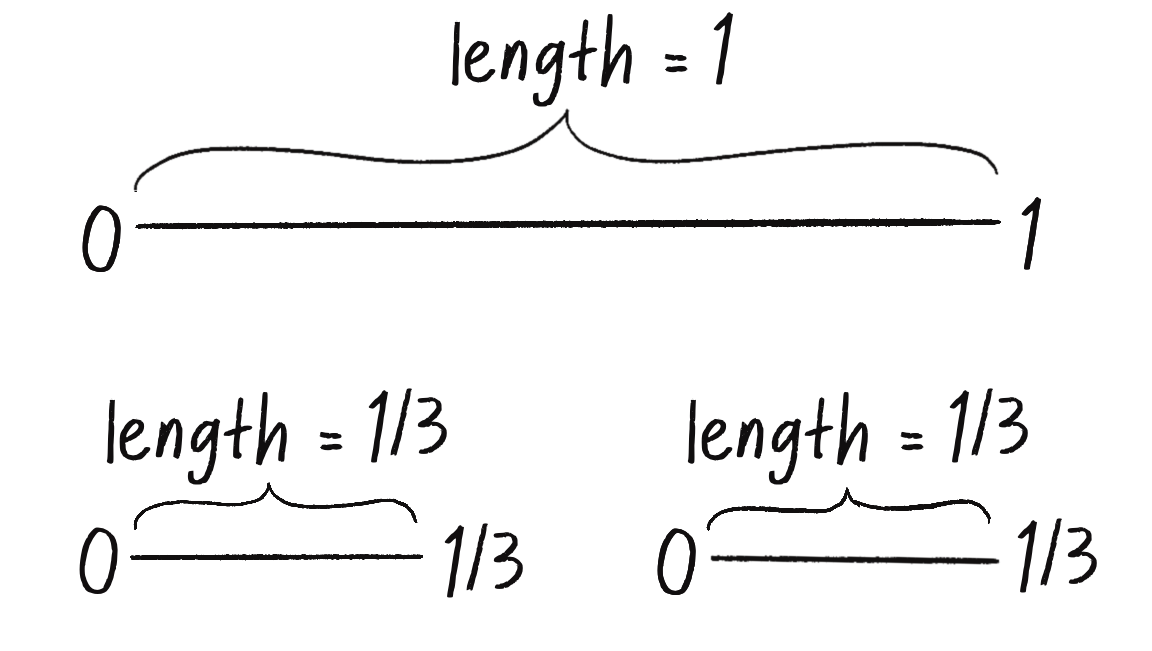 length = 1
0 1
length = 1/3 length = 1/3
0 1/3 0 1/3